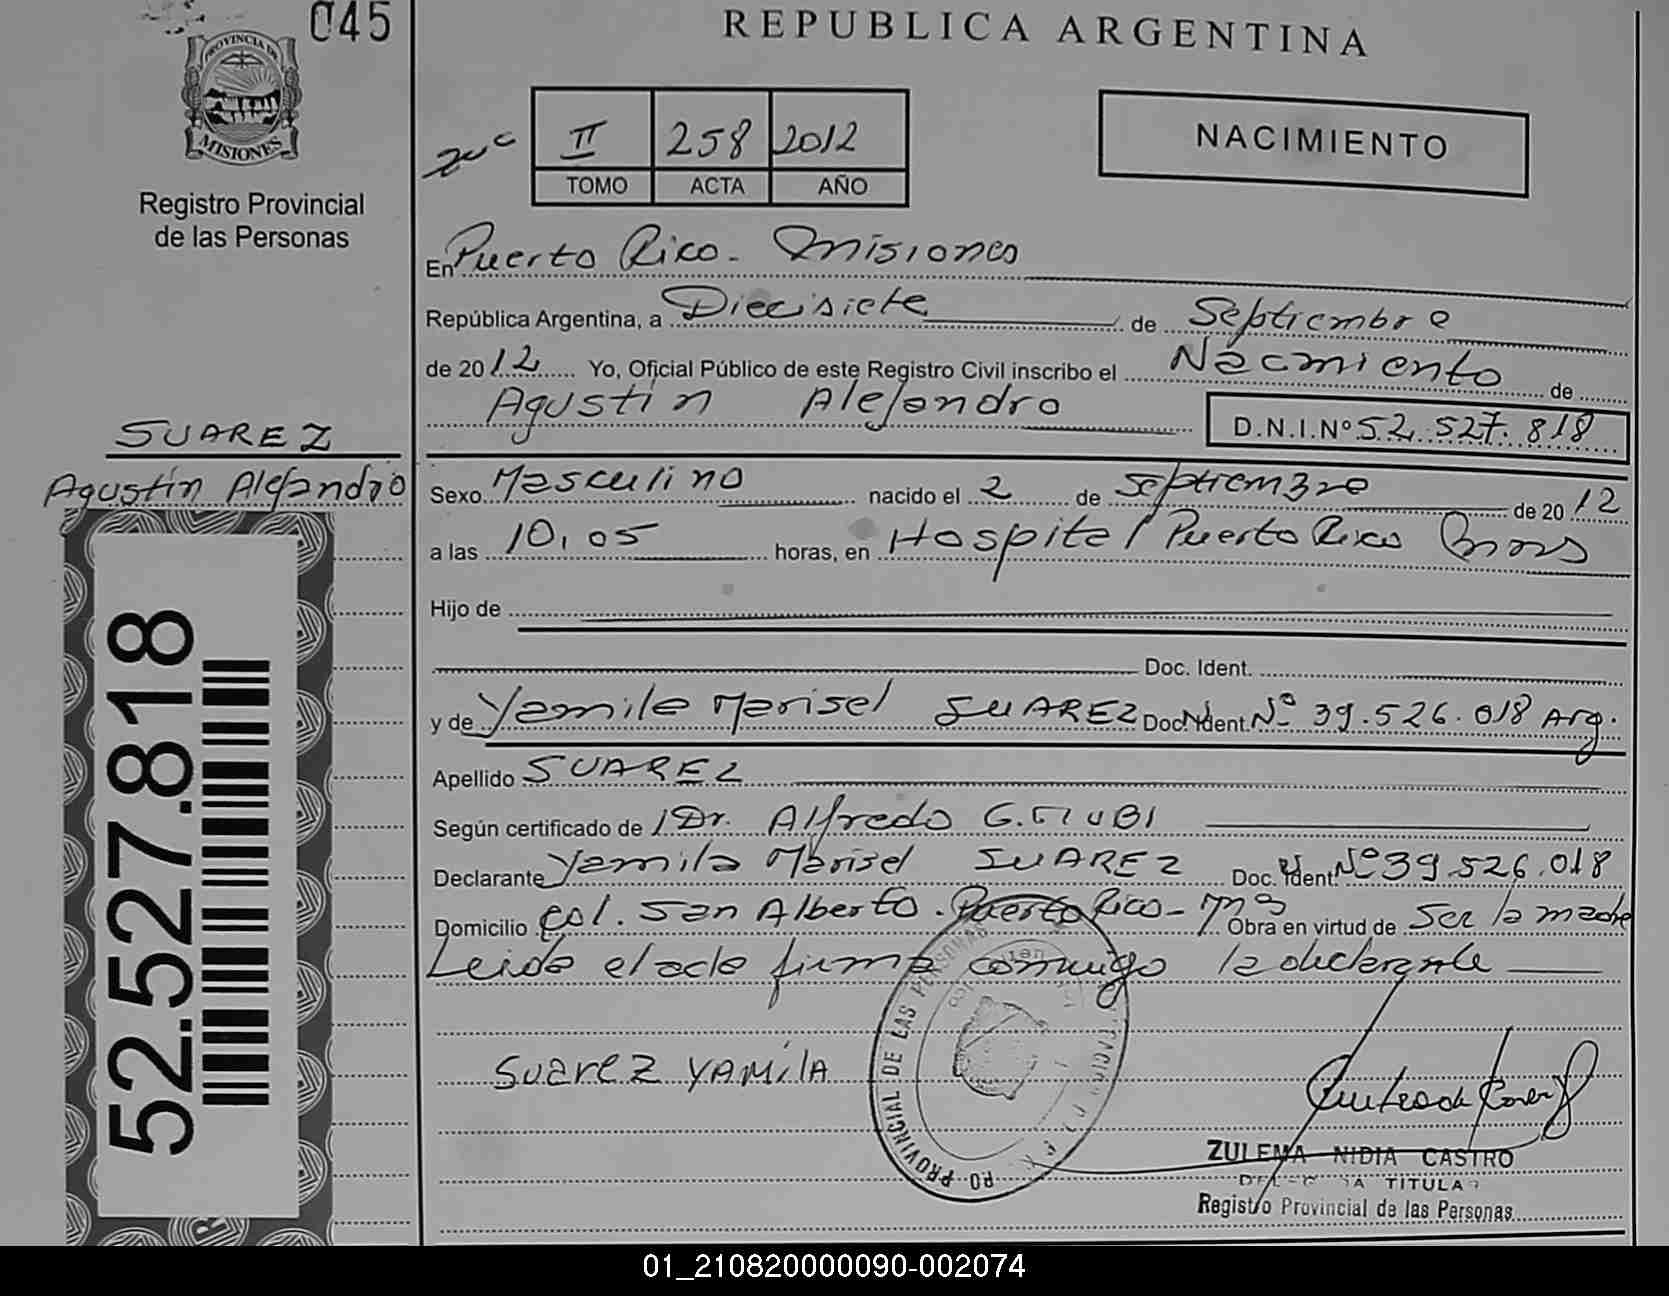 045
PROVINCIA DE
MISIONES
Registro Provincial
de las Personas
SUAREZ
Agustín Alejandro
52.527.818
REPUBLICA ARGENTINA
II 258 2012
TOMO ACTA AÑO
NACIMIENTO
En Puerto Rico - Misiones
República Argentina, a Diecisiete de Septiembre
de 2012 Yo, Oficial Público de este Registro Civil inscribo el Nacimiento de
Agustín Alejandro D.N.I.Nº 52.527.818
Sexo Masculino nacido el 2 de Septiembre de 2012
a las 10,05 horas, en Hospital Puerto Rico
Hijo de
Doc. Ident.
y de Yamila Marisel SUAREZ Doc. Ident. Nº 39.526.018 Arg.
Apellido SUAREZ
Según certificado de Dr. Alfredo G.
Declarante Yamila Marisel SUAREZ Doc. Ident. Nº 39.526.018
Domicilio Col. San Alberto - Puerto Rico - Mns Obra en virtud de Ser la madre
Leida el acta firma conmigo la declarante
SUAREZ YAMILA
PROVINCIAL DE LAS PERSONAS
ZULEMA NIDIA CASTRO
TITULAR
Registro Provincial de las Personas
01_210820000090-002074